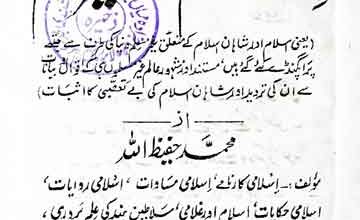 (یعنی اسلام اور شاہان اسلام کے متعلق دنیا کی طرف سے جتنے
پراگنڈے کئے گئے ہیں، مستند اور مشہور عالم غیر مسلموں ہی کے اقوال و بیانات
سے ان کی تردید اور شاہان اسلام کی بے تعصبی کا اثبات)
از
محمد حفیظ اللہ
مؤلف:۔ اسلامی کارنامے، اسلامی مساوات، اسلامی روایات،
اسلامی حکایات، اسلام اور غلامی، سلاطین ہند کی علم پروری،